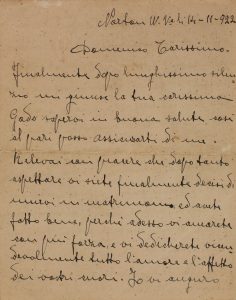 Norton W. Va li 14-11-922
Domenico Carissimo.
Finalmente dopo lunghissimo silen
zio mi giunse la tua carissima
Godo sapervi in buona salute, così
al pari posso assicurarti di me.
Rilevai con piacere che dopo tanto
aspettare vi siete finalmente decisi di
unirvi in matrimonio, ed avete
fatto bene, perchè adesso vi amarete
con più forza, e vi dedicherete vicen
devolmente tutto l'amore e l'affetto
dei vostri cuori. Io vi auguro